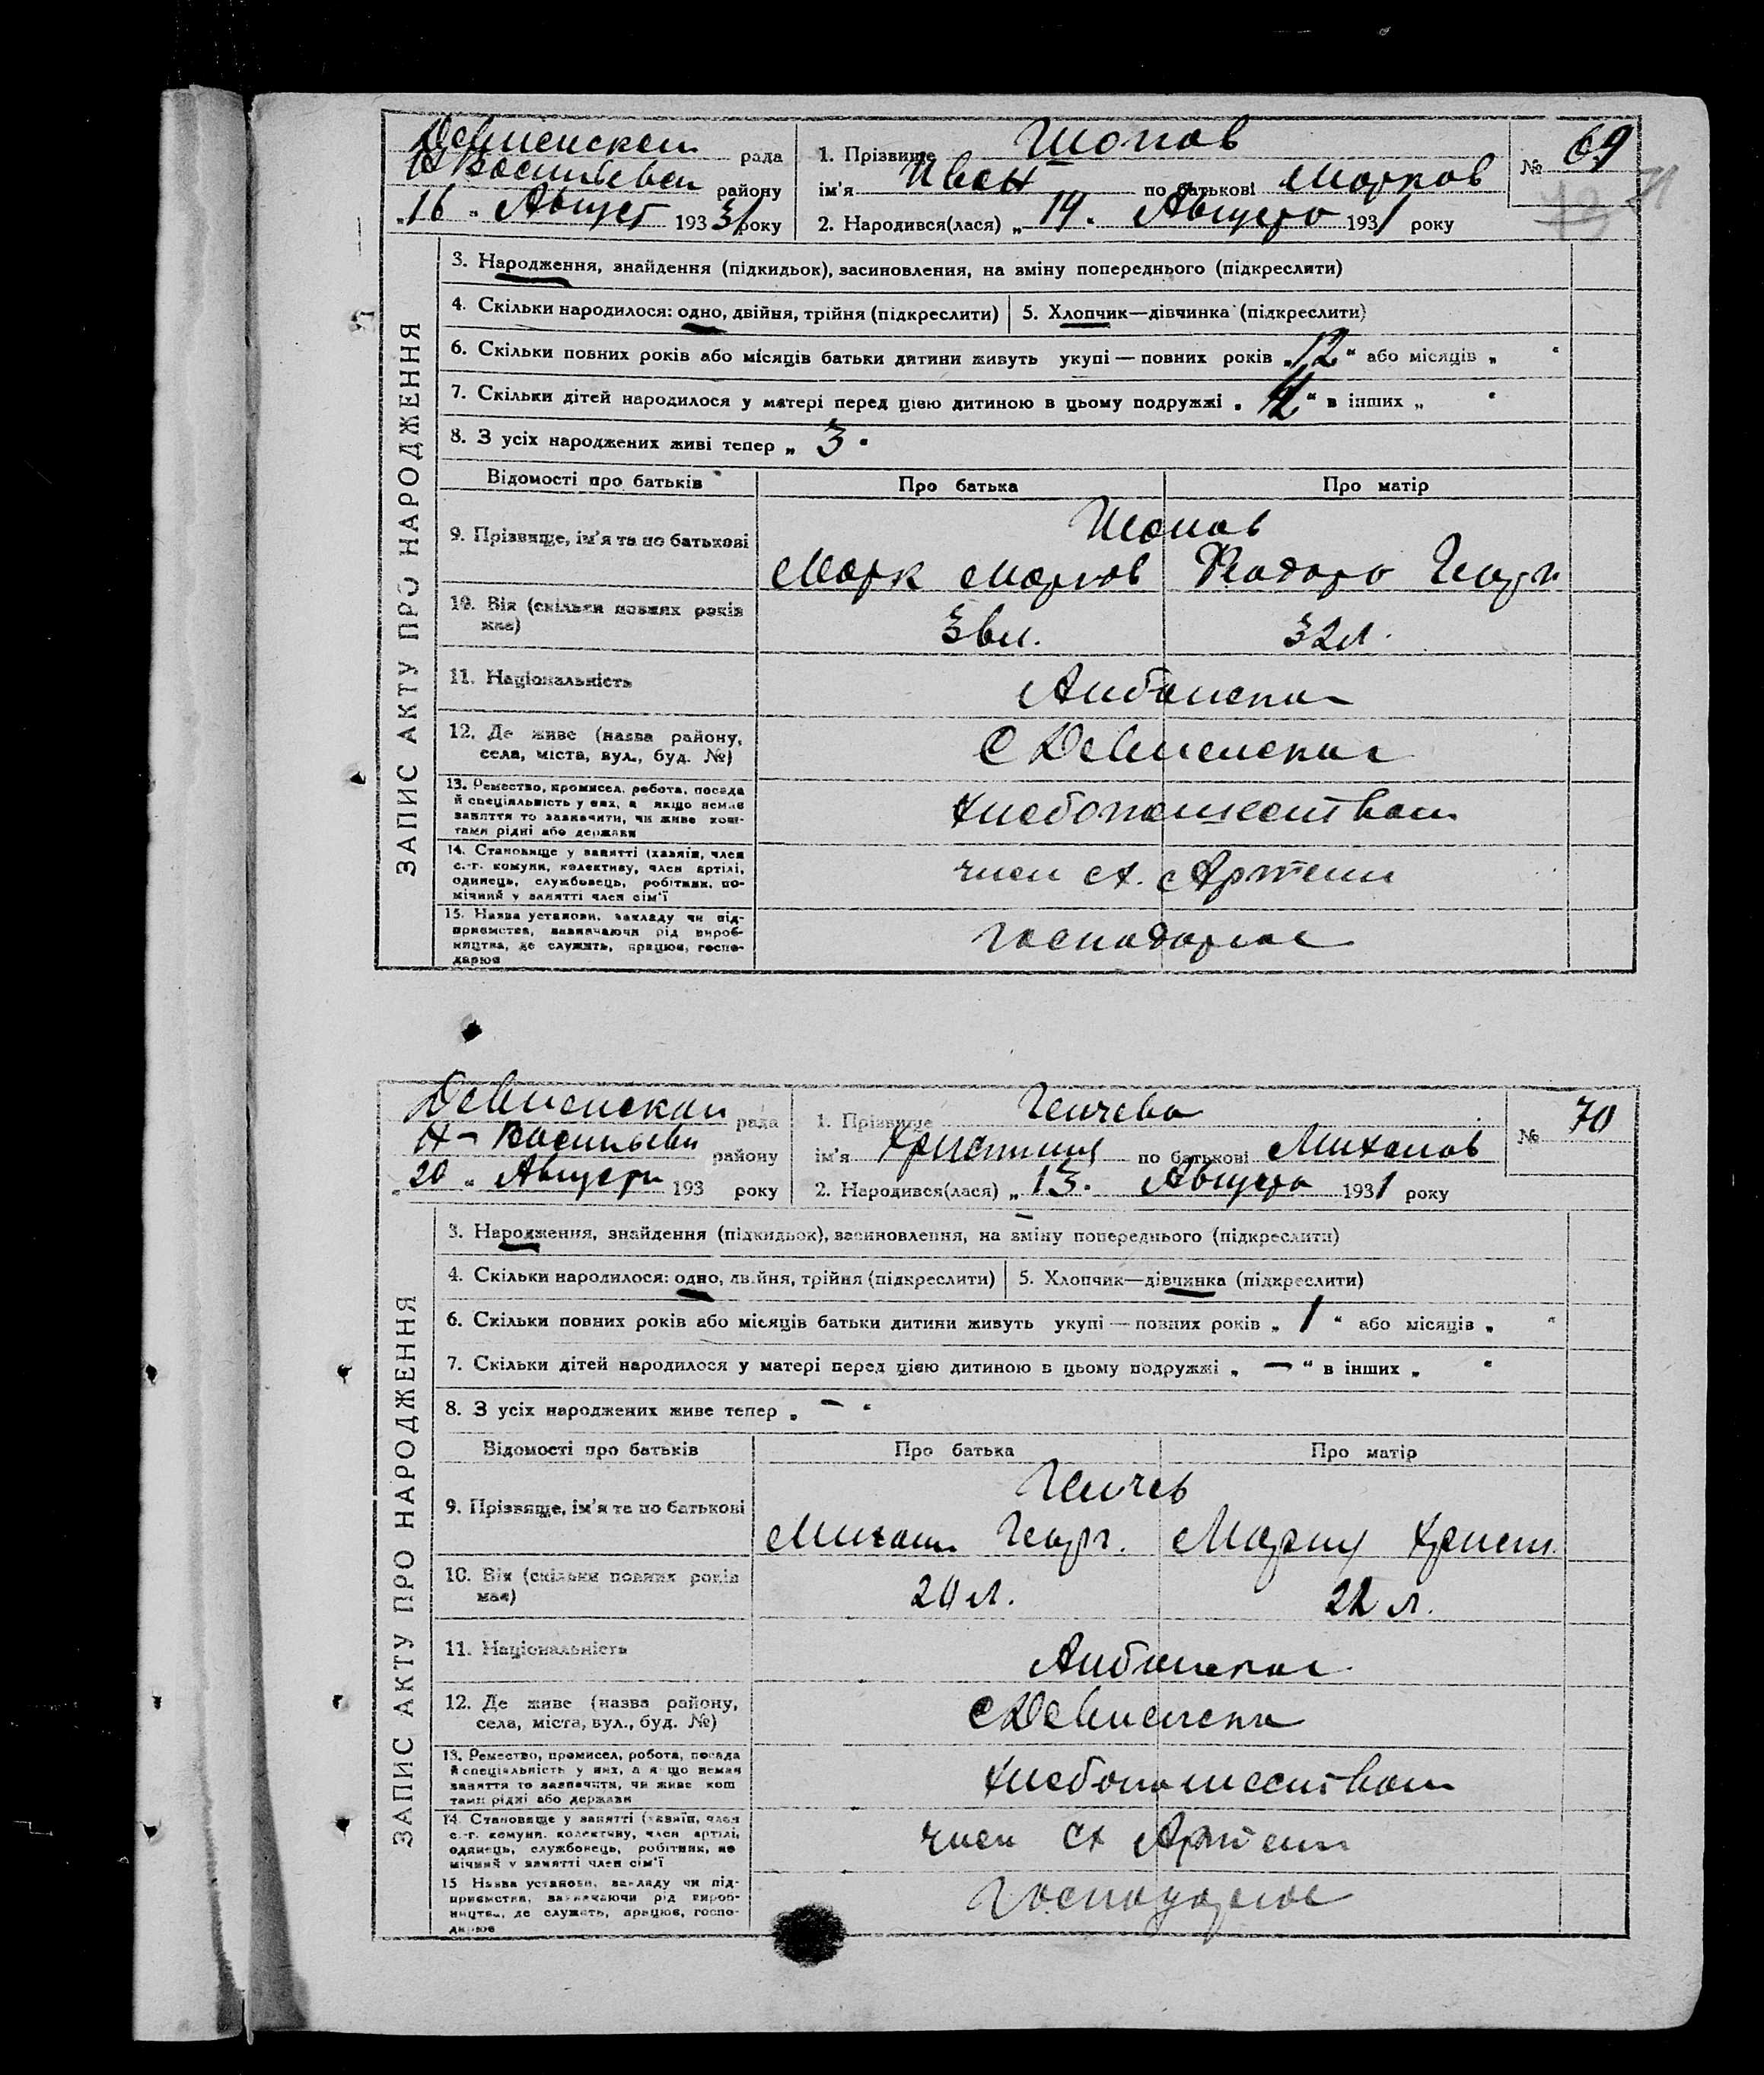 Девненскаи рада
Н Васильевки району
„16“ Август 1931 року
1. Прізвище Шопов
ім'я Иван по батькові Марков
2. Народився(лася) „14. Августа 1931 року
№ 69
71
ЗАПИС АКТУ ПРО НАРОДЖЕННЯ
3. Народження, знайдення (підкидьок), засиновлення, на зміну попереднього (підкреслити)
4. Скільки народилося: одно, двійня, трійня (підкреслити)
5. Хлопчик—дівчинка (підкреслити)
6. Скільки повних років або місяців батьки дитини живуть укупі — повних років „12“ або місяців „ “
7. Скільки дітей народилося у матері перед цією дитиною в цьому подружжі „4“ в інших „ “
8. З усіх народжених живі тепер „ 3 “
Відомості про батьків
Про батька
Про матір
9. Прізвище, ім'я та по батькові
Шопов
Марк Марков
Теодора Георги
10. Вік (скільки повних років
має)
36л.
32л.
11. Національність
Албанская
12. Де живе (назва району,
села, міста, вул., буд. №)
С Девненская
13. Ремество, промисел, робота, посада
й спеціяльність у них, а якщо немає
заняття то зазначити, чи живе кош-
тами рідні або держави
Хлебопашеством
14. Становище у занятті (хазяїн, член
с.-г. комуни, колективу, член артілі,
одинець, службовець, робітник, по-
мічний у занятті член сім'ї
член сх. Артели
15. Назва установи, закладу чи під-
приємства, зазначаючи рід вироб-
ництва, де служить, працює, госпо-
дарює
Господарює
Девненскаи рада
Н-Васильевки району
„20“ Августа 193 року
1. Прізвище Генчева
ім'я Християния по батькові Михаилов
2. Народився(лася) „13. Августа 1931 року
№ 70
ЗАПИС АКТУ ПРО НАРОДЖЕННЯ
3. Народження, знайдення (підкидьок), засиновлення, на зміну попереднього (підкреслити)
4. Скільки народилося: одно, двійня, трійня (підкреслити)
5. Хлопчик—дівчинка (підкреслити)
6. Скільки повних років або місяців батьки дитини живуть укупі — повних років „ 1 “ або місяців „ “
7. Скільки дітей народилося у матері перед цією дитиною в цьому подружжі „ — “ в інших „ “
8. З усіх народжених живе тепер „ — “
Відомості про батьків
Про батька
Про матір
9. Прізвище, ім'я та по батькові
Генчев
Михаил Георг.
Мария Христ.
10. Вік (скільки повних років
має)
20 л.
22 л.
11. Національність
Албанская
12. Де живе (назва району,
села, міста, вул., буд. №)
С Девненска
13. Ремество, промисел, робота, посада
й спеціяльність у них, а якщо немає
заняття то зазначити, чи живе кош
тами рідні або держави
Хлебопашеством
14. Становище у занятті (хазяїн, член
с.-г. комуни, колективу, член артілі,
одинець, службовець, робітник, по
мічний у занятті член сім'ї
член сх Артели
15 Назва установи, закладу чи під-
приємства, зазначаючи рід вироб-
ництва, де служить, працює, госпо-
дарює
Господарює